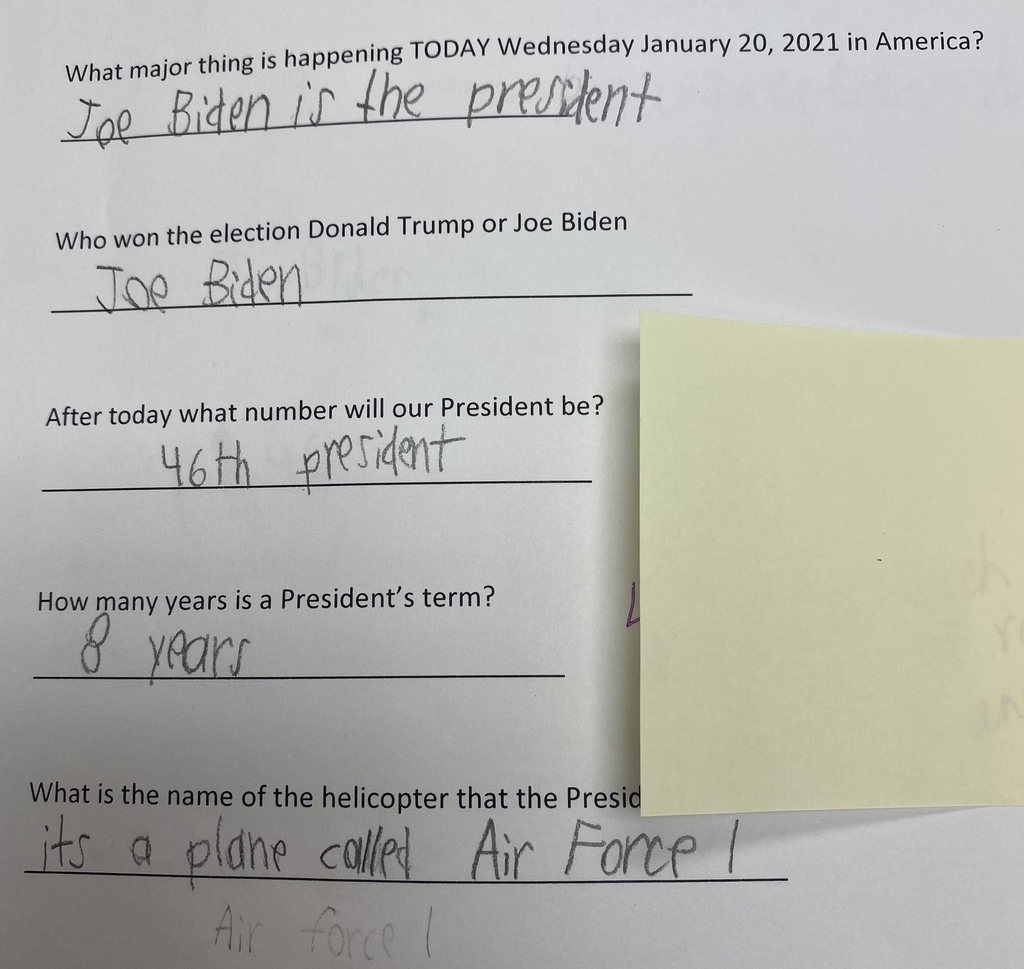 What major thing is happening TODAY Wednesday January 20, 2021 in America?
Joe Biden is the president
Who won the election Donald Trump or Joe Biden
Joe Biden
After today what number will our President be?
46th president
How many years is a President's term?
8 years
What is the name of the helicopter that the Presid
its a plane called Air Force 1
Air force 1